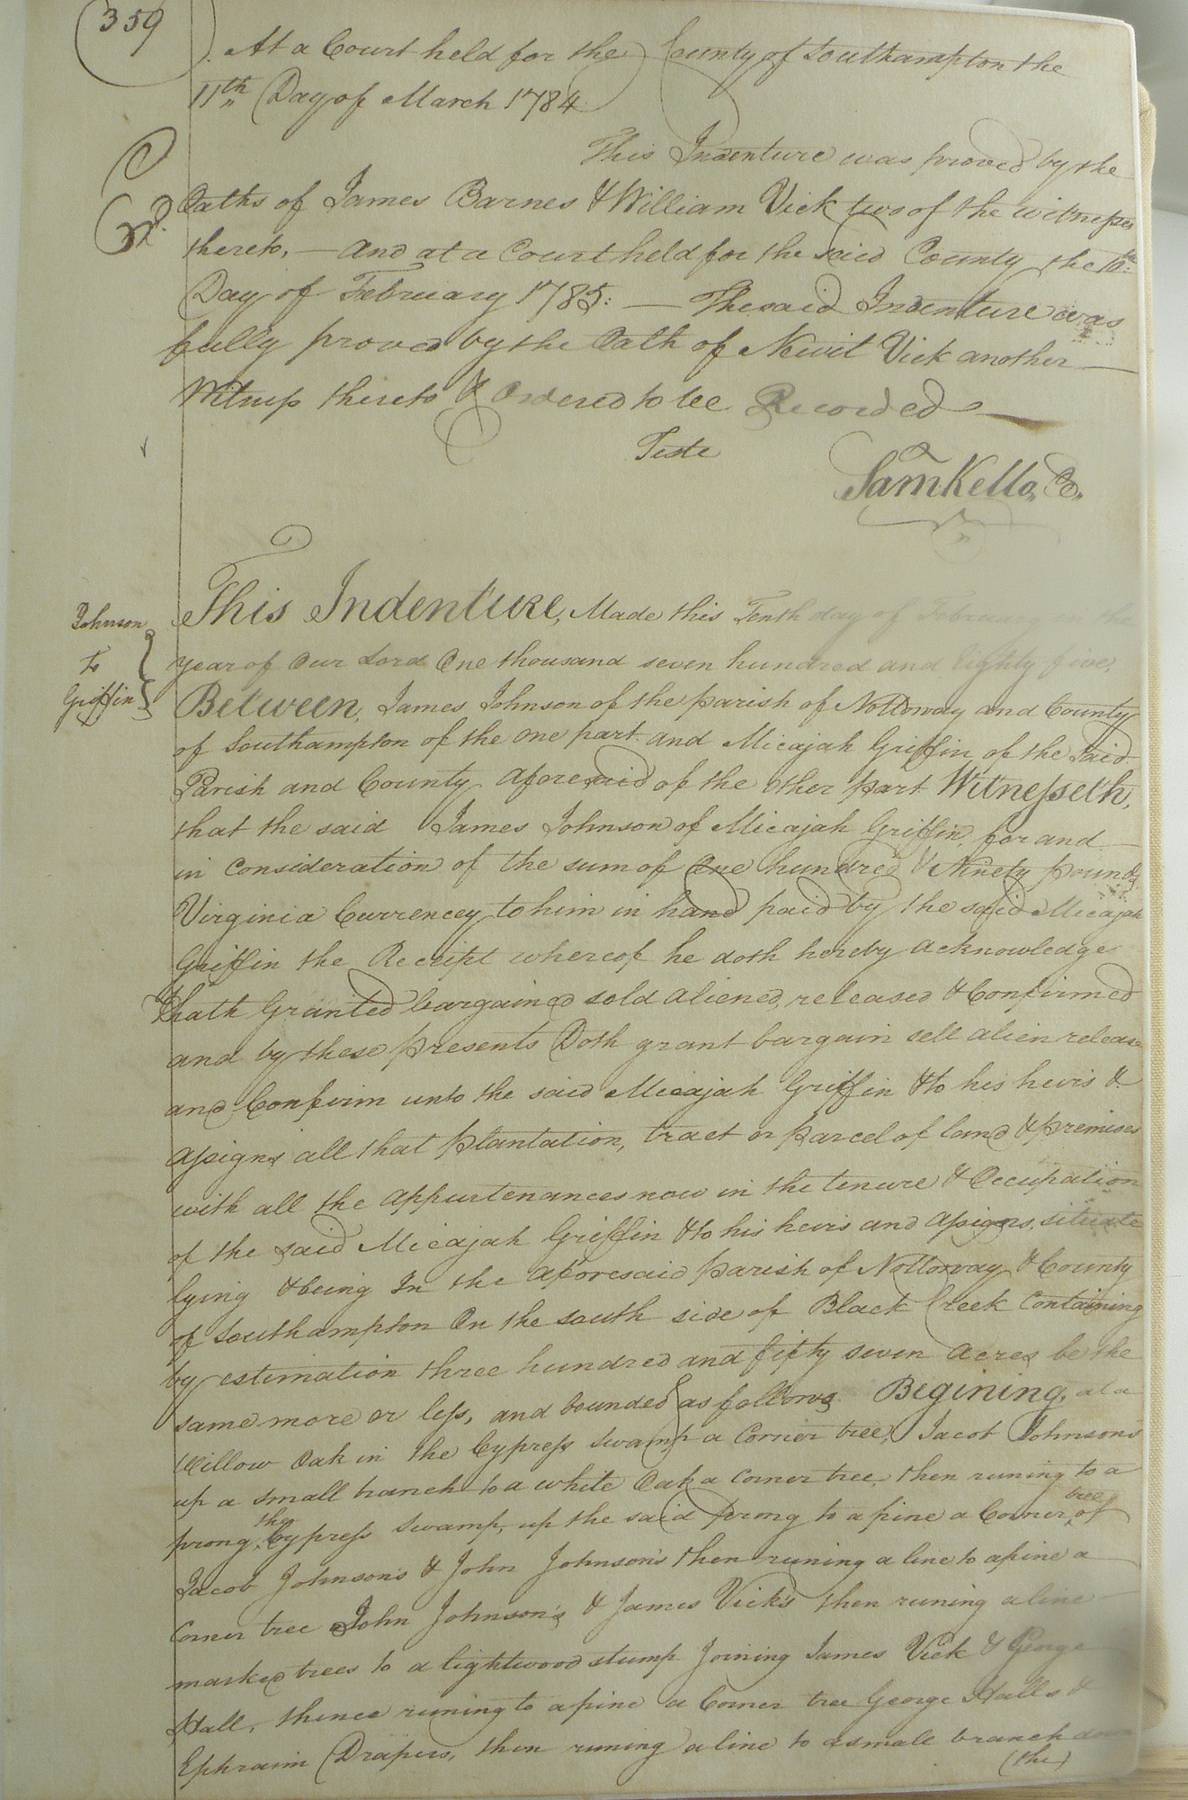 359
At a Court held for the County of Southampton the
11th Day of March 1784
This Indenture was proved by the
Oaths of James Barnes & William Vick two of the witnesses
thereto, — And at a Court held for the said County the 10th:
Day of February 1785: — The said Indenture was
fully proved by the Oath of Newit Vick another
Witness thereto & Ordered to be Recorded
Teste
Saml Kello, C.
Johnson
To
Griffin
This Indenture, Made this Tenth day of February in the
year of Our Lord One thousand seven hundred and eighty five,
Between, James Johnson of the parish of Nottoway and County
of Southampton of the one part and Micajah Griffin of the said
Parish and County aforesaid of the other part Witnesseth,
that the said James Johnson of Micajah Griffin, for and
in Consideration of the sum of One hundred & Ninety pounds
Virginia Currencey to him in hand paid by the said Micajah
Griffin the Receipt whereof he doth hereby acknowledge
hath Granted bargained sold aliened, released & Confirmed
and by these presents Doth grant bargain sell alien release
and Confirm unto the said Micajah Griffin & to his heirs &
assigns all that plantation, tract or parcel of land & premises
with all the appurtenances now in the tenure & Occupation
of the said Micajah Griffin & to his heirs and assigns, situate
lying & being In the aforesaid parish of Nottoway & County
of Southampton On the south side of Black Creek Containing
by estimation three hundred and fifty seven Acres be the
same more or less, and bounded as follows Begining, at a
Willow Oak in the Cypress swamp a Corner tree, Jacob Johnson's
up a small branch to a white Oak a corner tree, then runing to a
prong the Cypress swamp, up the said prong to a pine a Corner tree of
Jacob Johnson's & John Johnson's then runing a line to a pine a
Corner tree John Johnson's & James Vick's then runing a line
marked trees to a lightwood stump Joining James Vick & George
Hall, thence runing to a pine a Corner tree George Halls &
Ephraim Drapers, then runing a line to a small branch down
(the)